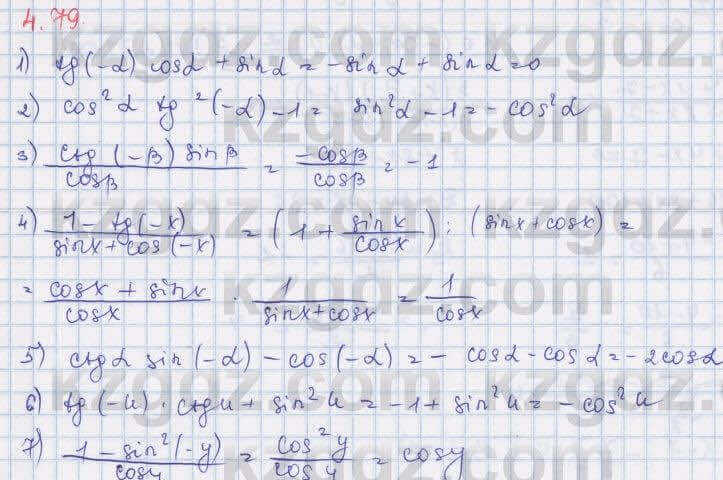 4.79
1) tg(-α) cosα + sinα = -sinα + sinα = 0
2) cos²α tg²(-α) - 1 = sin²α - 1 = -cos²α
3) ctg(-β) sinβ / cosβ = -cosβ / cosβ = -1
4) 1 - tg(-x) / sinx + cos(-x) = (1 + sinx / cosx) : (sinx + cosx) =
= cosx + sinx / cosx · 1 / sinx + cosx = 1 / cosx
5) ctgα sin(-α) - cos(-α) = - cosα - cosα = -2cosα
6) tg(-u) · ctgu + sin²u = -1 + sin²u = -cos²u
7) 1 - sin²(-y) / cosy = cos²y / cosy = cosy